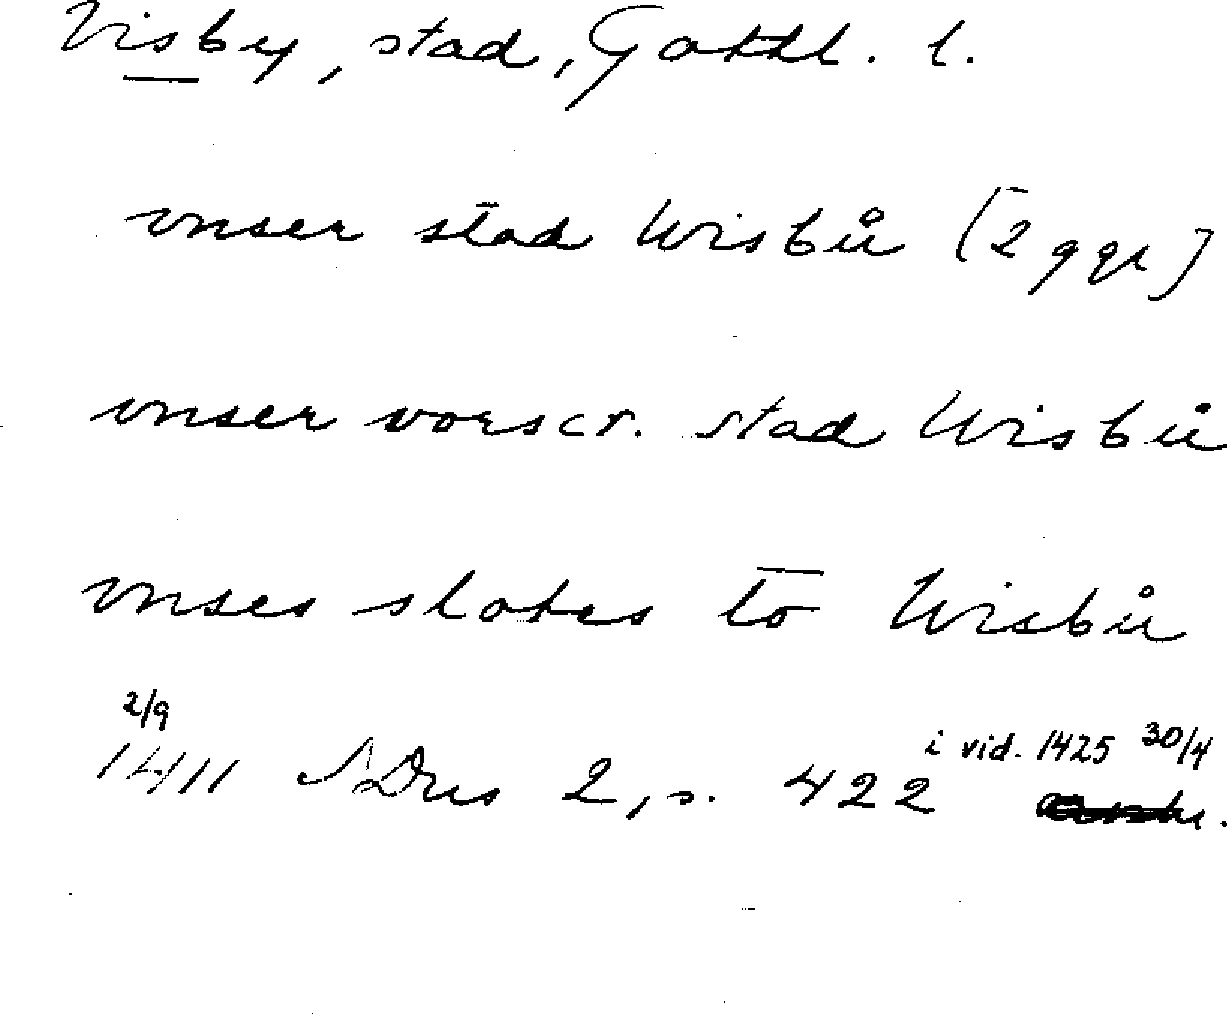 Visby, stad, Gottl. l.
vnser stad Wisbů [2 ggr]
vnser vorscr. stad Wisbů
vnses slotes to Wisbů
2/9 i vid. 1425 30/4
1411 SDns 2, s. 422